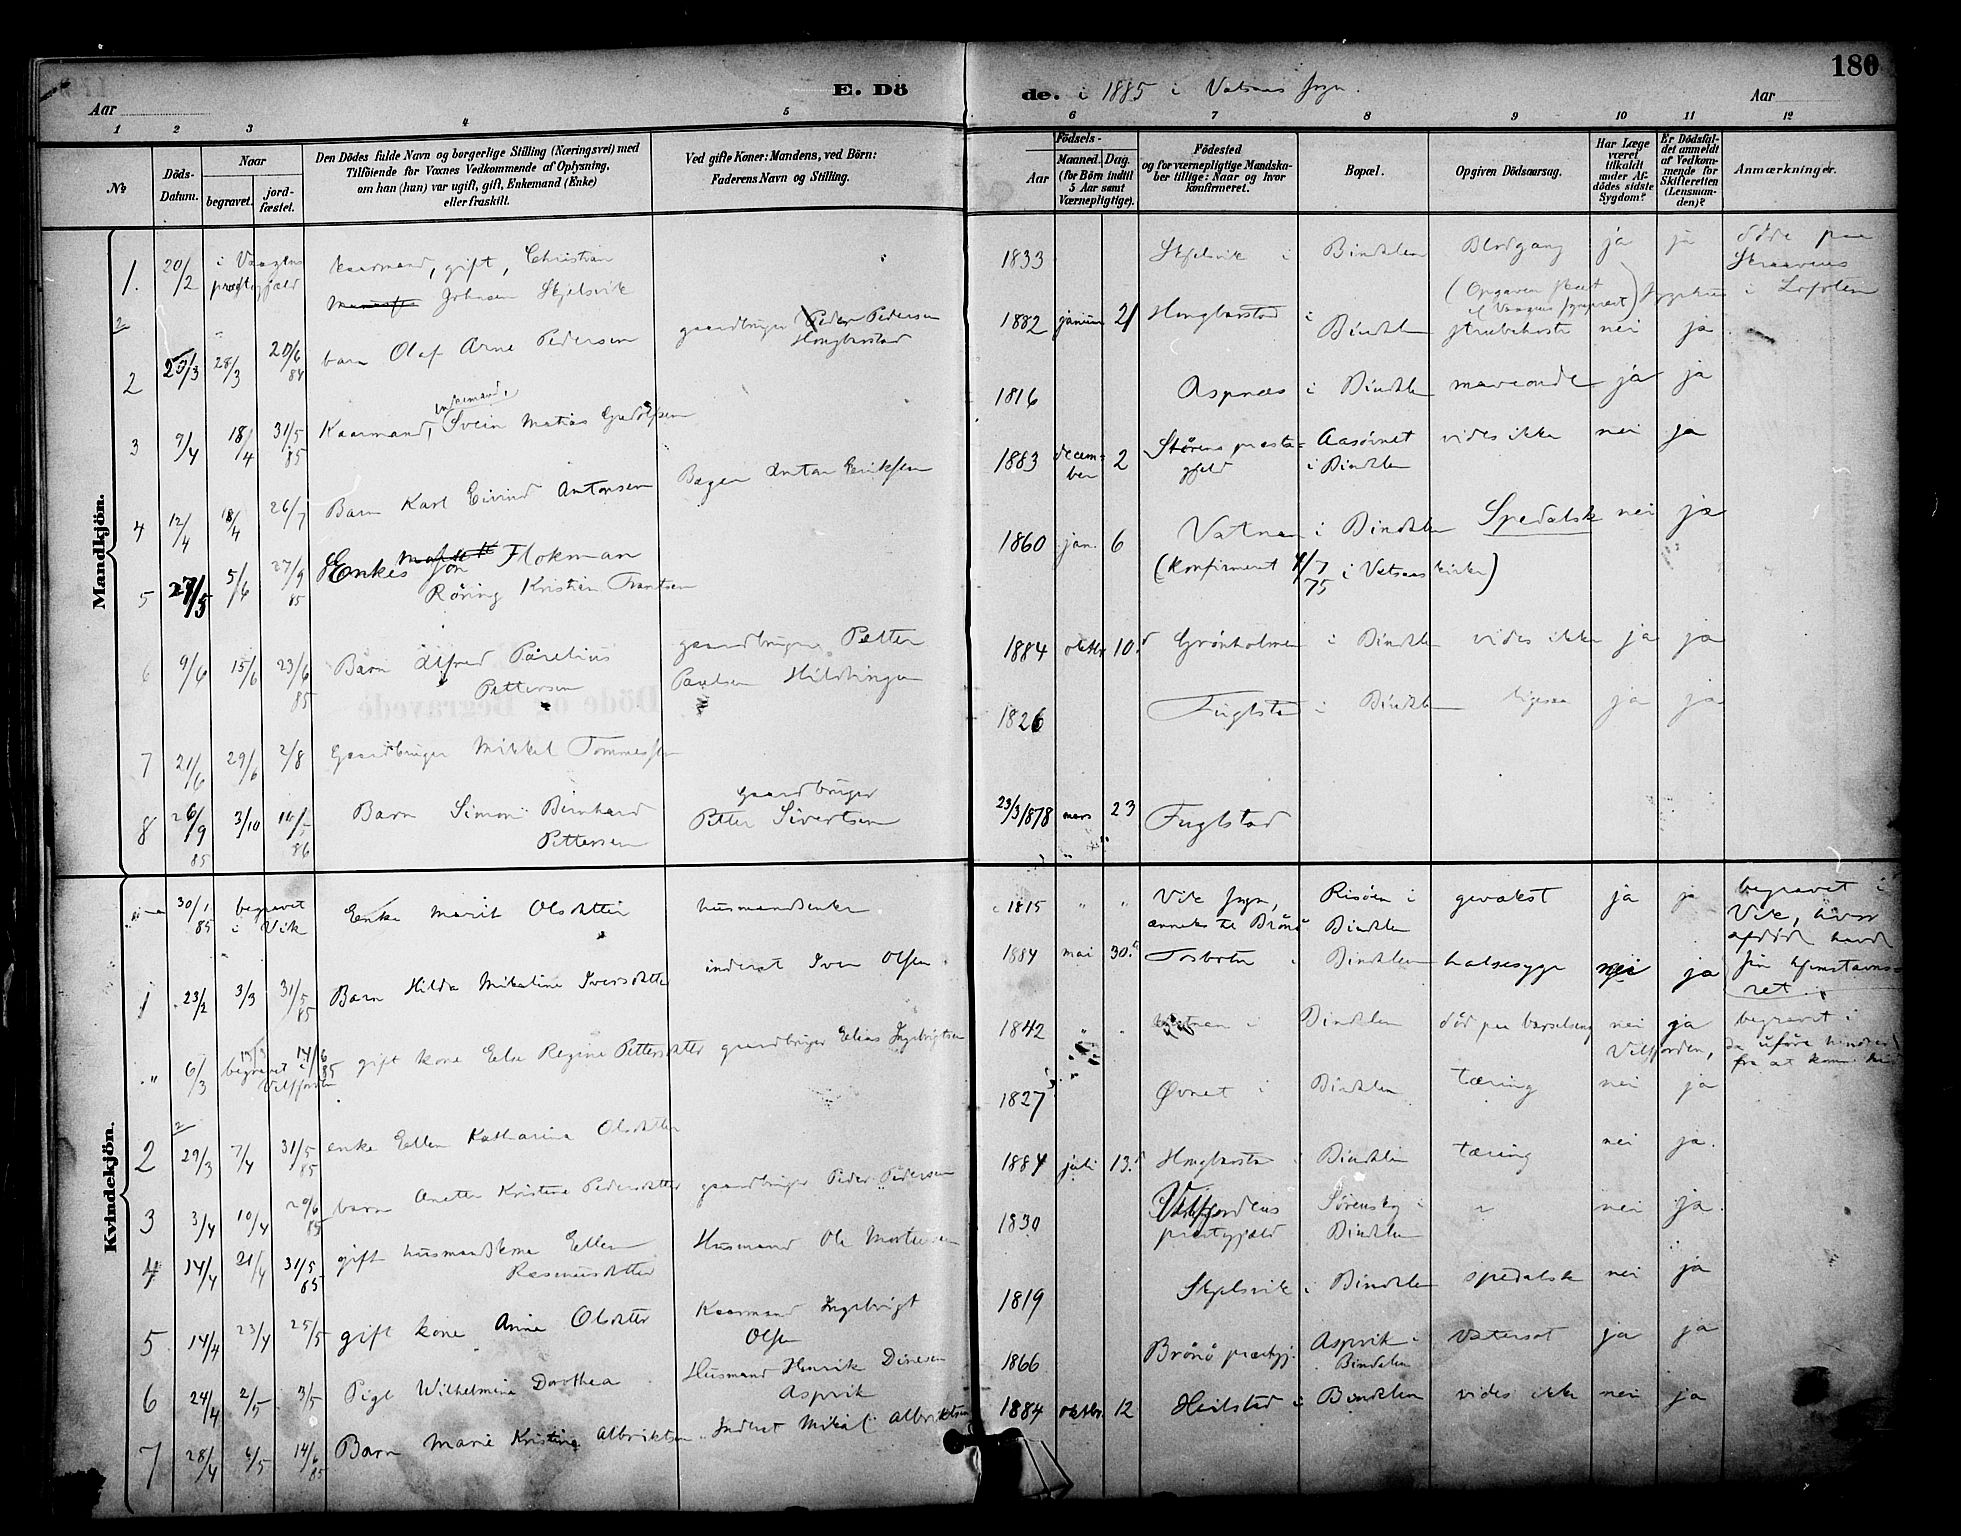 180
E. Dö de. i 1885 i Vatsaas sogn.
Aar
Aar
1 2 3 4 5 6 7 8 9 10 11 12
№
Döds-Datum.
Naar
begravet.
jord-fæstet.
Den Dödes fulde Navn og borgerlige Stilling (Næringsvei) med
Tilföiende for Voxnes Vedkommende af Oplysning,
om han (hun) var ugift, gift, Enkemand (Enke)
eller fraskilt.
Ved gifte Koner: Mandens, ved Börn:
Faderens Navn og Stilling.
Födsels-
Aar
Maaned. Dag.
(for Börn indtil
5 Aar samt
Værnepligtige).
Födested
og for værnepligtige Mandska-
ber tillige: Naar og hvor
konfirmeret.
Bopæl.
Opgiven Dödsaarsag.
Har Læge
været
tilkaldt
under Af-
dödes sidste
Sygdom?
Er Dödsfal-
det anmeldt
af Vedkom-
mende for
Skifteretten
(Lensman-
den)?
Anmærkninger.
Mandkjön.
1. 20/2 i Vaagens præstegjeld Kaarmand, gift, Christian Johnsen Skjelsvik 1833 Skjelsvik i Bindalen Blodgang ja ja døde paa Skraaven i Lofoten
(Opgaven fra Vaagens sognepræst)
2 23/3 28/3 20/6 84 barn Olaf Arne Pedersen gaardbruger Peder Pedersen Hongbarstad 1882 januar 21 Hongbarstad i Bindalen strubehoste nei ja
3 9/4 18/4 31/5 85 Kaarmand, enkemand, Svein Matias Gudolfsen 1816 Aspnæs i Bindalen maveonde ja ja
4 12/4 18/4 26/7 Barn Karl Eivind Antonsen Bager Anton Eriksen 1883 decem-ber 2 Störens præste-gjeld Aasörnet i Bindalen vides ikke nei ja
5 27/5 5/6 27/9 85 Enkes Søn Flokman Röring Kristian Frantsen 1860 jan. 6 Vatnen i Bindalen Spedalsk nei ja
(konfirmeret 4/7 75 i Vatsaas kirke)
6 9/6 15/6 23/6 85 Barn Alfred Parelius Pettersen gaardbruger Petter Paulsen Hildringen 1884 oktbr 10. Grönholmen i Bindalen vides ikke ja ja
7 21/6 29/6 2/8 Gaardbruger Mikkel Tommessen 1826 Fuglstad i Bindalen ligesaa ja ja
8 26/9 85 3/10 86 Barn Simon Bernhard Pettersen gaardbruger Petter Sivertsen 23/3 1878 mars 23 Fuglstad
Kvindekjön.
30/1 85 begravet i Vik Enke Marit Olsdatter husmandsenke 1815 " " Vik sogn, anneks til Brönö Risöen i Bindalen gevækst ja ja begravet i Vik, hvor afdöde havde sin hjemstavns-ret.
1 23/2 3/3 31/5 85 Barn Hilda Mikaline Iversdatter inderst Iver Olsen 1884 mai 30. Tosbotn Bindalen halsesyge nei ja
" 6/3 begravet i Vilfjorden 14/6 85 gift kone Else Regine Pettersdatter gaardbruger Elias Ingebrigtsen 1842 " " i Bindalen död paa barselseng nei ja begravet i Velfjorden, da uföre hindrede fra at komme hid
2 29/3 7/4 31/5 85 enke Ellen Katharina Olsdatter 1827 Øvnet i Bindalen tæring nei ja
3 3/4 10/4 20/6 85 barn Anetta Kristine Pedersdatter gaardbruger Peder Pedersen 1884 juli 13. Hongbarsta i Bindalen tæring nei ja.
4 14/4 21/4 31/5 85 gift husmandskone Ellen Rasmusdatter Husmand Ole Mortensen 1830 Velfjordens præstegjæld Bindalen " nei ja.
5 14/4 23/4 25/5 gift kone Anne Olsdatter Kaarmand Ingebrigt Olsen 1819 Skjelsvik i Bindalen spedalsk nei ja
6 24/4 2/5 3/5 Pige Wilhelmine Dorothea Husmand Henrik Dinesen Aspvik 1866 Brönö præstegj. Aspvik i Bindalen Vatersot ja ja
7 28/4 6/5 14/6 85 Barn Marie Kristine Albriktsen Inderst Mikal Albriktsen 1884 oktbr. 12 Heilstad i Bindalen vides ikke nei ja